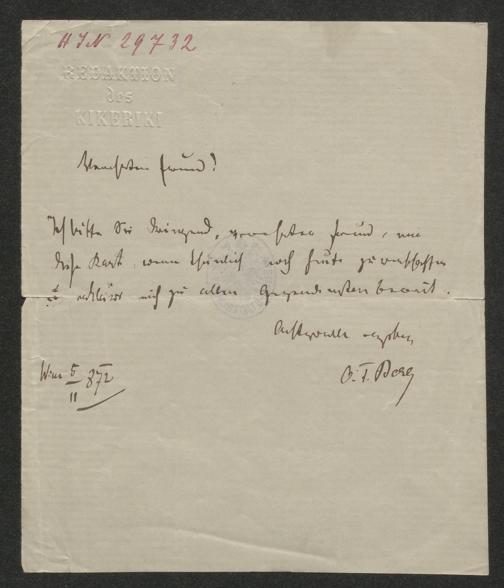 HIN 29732
REDAKTION
des
KIKERIKI
Verehrter Freund!
Ich bitte Sie dringend, verehrter Freund, um
diese Karte, wenn thunlich noch heute zu
u. erkläre mich zu allen Gegendiensten bereit.
Achtungsvoll ergeben
O. F. Berg
Wien 5/II 872